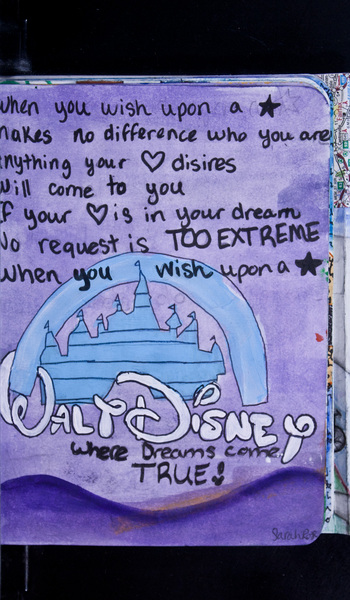 When you wish upon a ★
makes no difference who you are
anything your ♡ disires
will come to you
If your ♡ is in your dream
No request is TOO EXTREME
when you wish upon a ★
WALT DISNEY
where Dreams come
TRUE!